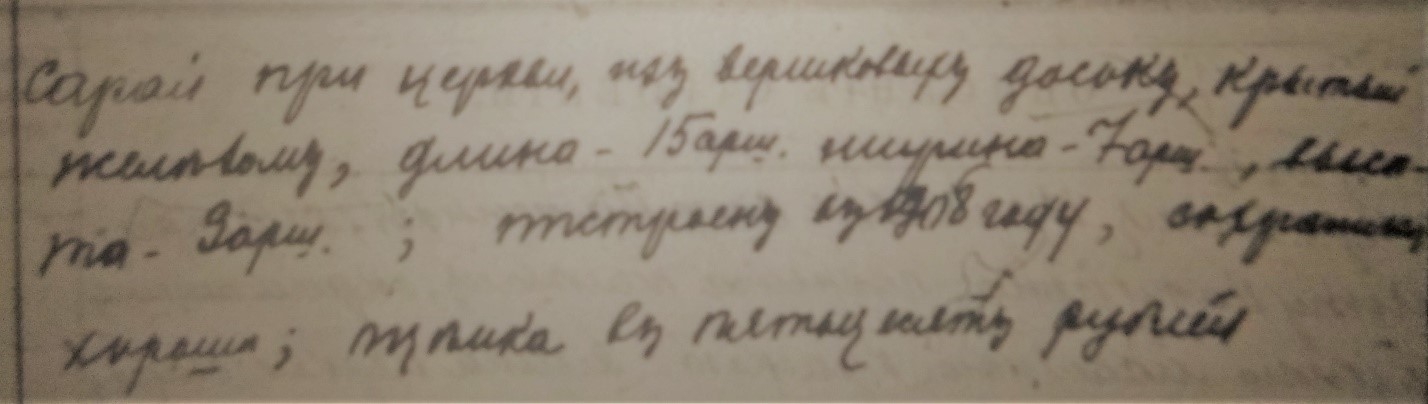 Сарай при церкви, изъ вершковыхъ досокъ, крытый
желѣзомъ, длина - 15 арш. ширина - 7 арш., высо-
та - 3 арш. ; построенъ въ году,
хороша; оцѣнка въ пятьдесятъ рублей